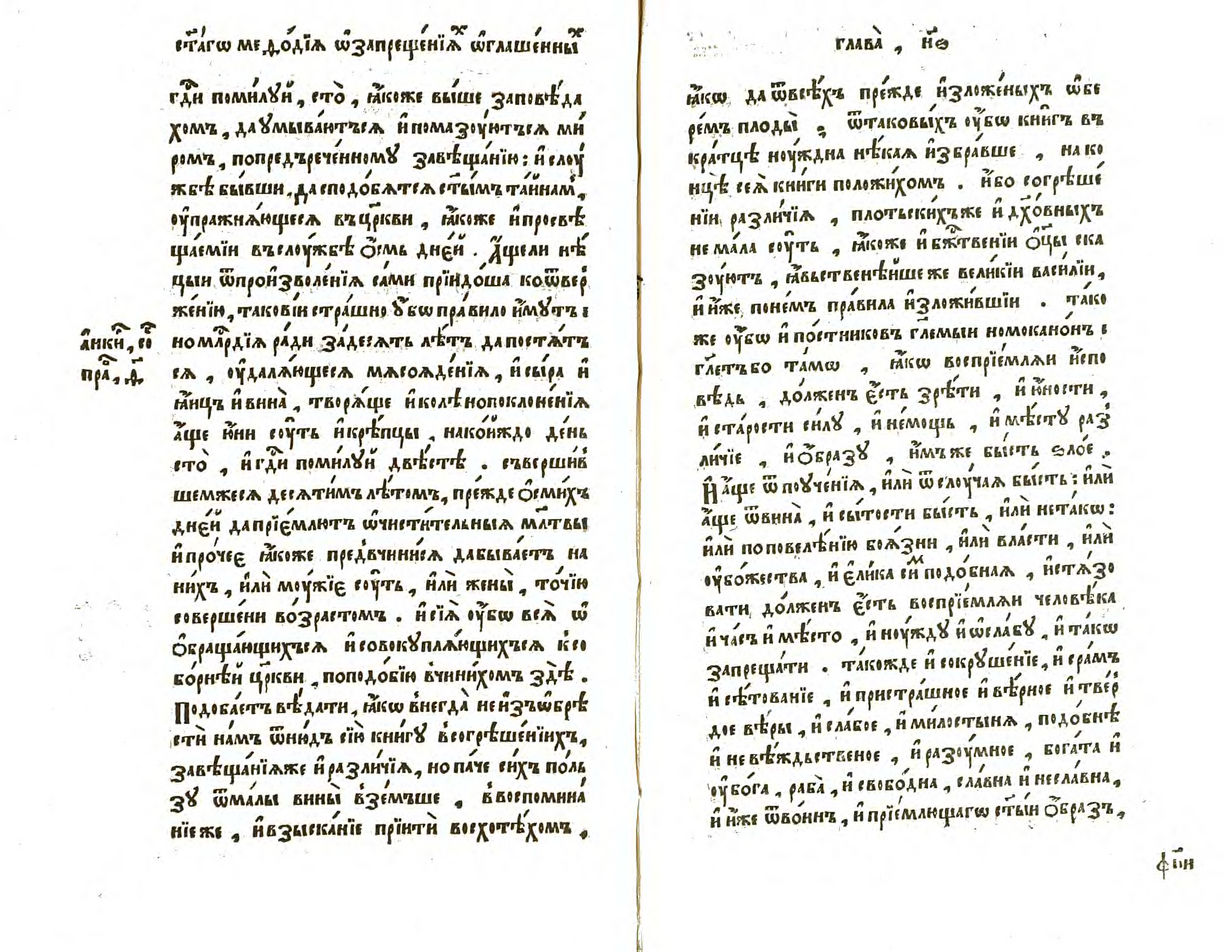 ст҃а́гѡ меѳо́дїѧ ѡ҆запреще́нїѧⷯ ѡ҆глаше́нныⷯ
гдⷭ҇и поми́лꙋй, сто̀, ꙗ҆́коже выше заповѣ́да
хомъ, да ᲂу҆мыва́ютъсѧ и҆ помазꙋ́ютъсѧ ми́
ромъ, по предърече́нномꙋ завѣща́нїю: и҆ слꙋ́
жбѣ бы́вши, да сподо́бѧтсѧ ст҃ы́мъ та́йнамъ,
ᲂу҆пражнѧ́ющесѧ въ цр҃кви, ꙗ҆́коже и҆ просвѣ
ща́емїи въ слꙋ́жбѣ о҆́смь дне́й. А҆́щели нѣ́
цыи ѿ произволе́нїѧ са́ми прїидо́ша ко ѿве́р
же́нїю, таковїи стра́шно ᲂу҆́бѡ пра́вило и҆́мꙋтъ:
но млⷭ҇рдїѧ ра́ди за де́сѧть лѣ́тъ да постѧ́тъ
сѧ, ᲂу҆далѧ́ющесѧ мѧсоѧде́нїѧ, и҆ сы́ра и҆
ꙗ҆и́цъ и҆ вина̀, творѧ́ще и҆ колѣнопоклоне́нїѧ
а҆́ще ю҆́ни сꙋ́ть и҆ крѣ́пцы, на ко́йждо де́нь
сто̀, и҆ гдⷭ҇и поми́лꙋй двѣ́стѣ. съверши́в
шемжесѧ десѧти́мъ лѣ́томъ, пре́жде о҆́сми́хъ
дне́й да прїе́млютъ ѡ҆чисти́тельныѧ мл҃твы
и҆ про́чее ꙗ҆́коже пред̾вчини́сѧ да быва́етъ на
ни́хъ, и҆лѝ мꙋ́жїе сꙋ́ть, и҆лѝ жены̀, то́чїю
соверше́ни во́зрастомъ. и҆ сїѧ̀ ᲂу҆́бѡ всѧ̀ ѡ҆
о҆браща́ющихъсѧ и҆ совокꙋплѧ́ющихъсѧ к̾ со
бо́рнѣй цр҃кви, по подо́бїю вчини́хомъ здѣ̀.
Подоба́етъ вѣ́дати, ꙗ҆́кѡ в̾негда̀ не и҆зъѡбрѣ
стѝ на́мъ ѿню́дъ сїю̀ кни́гꙋ в̾согрѣше́нїихъ,
завѣща́нїѧже и҆ разли́чїѧ, но па́че си́хъ по́ль
зꙋ ѿ малы вины̀ в̾зе́мъше, в̾ воспомина́
нїеже, и҆ взыска́нїе прїитѝ восхотѣ́хомъ,
а҆ники́, со
праⷡ, д҃.
глава̀, н҃ѳ
ꙗ҆́кѡ да ѿ всѣ́хъ пре́жде и҆зложе́ныхъ ѡ҆бе
ре́мъ плоды̀; ѿ таковы́хъ ᲂу҆́бѡ кни́гъ въ
кра́тцѣ нꙋ́ждна нѣ́каѧ и҆збра́вше, на ко
нцѣ̀ сеѧ̀ кни́ги положи́хомъ. и҆́бо согрѣше́
нїи разли́чїѧ, плотьски́хъже и҆ дх҃о́вныхъ
не ма́ла сꙋ́ть, ꙗ҆́коже и҆ бж҃твенїи ѻ҆ц҃ы̀ ска
зꙋ́ютъ, ꙗ҆́вьственѣйше же вели́кїи васи́лїи,
и҆ и҆́же по не́мъ пра́вила и҆зложи́вшїи. та́ко
же ᲂу҆́бѡ и҆ по́стниковъ гл҃емыи номокано́нъ с
гл҃етъбо та́мѡ, ꙗ҆́кѡ воспрїе́млѧи и҆́спо
вѣдь, до́лженъ е҆́сть зрѣ́ти, и҆ ю҆́ности,
и҆ ста́рости си́лꙋ, и҆ не́мощь, и҆ мѣ́стꙋ раз̾
ли́чїе, и҆ о҆́бразꙋ, и҆́мъже бы́сть ѕло́е.
И҆ а҆́ще ѿ поꙋче́нїѧ, и҆лѝ ѿ слꙋ́чаѧ бы́сть: и҆лѝ
а҆́ще ѿ вина̀, и҆ сы́тости бы́сть, и҆лѝ не та́кѡ:
и҆лѝ по повелѣ́нїю боѧ́зни, и҆лѝ вла́сти, и҆лѝ
ᲂу҆бо́жества, и҆ є҆ли́ка си́мⷨ подо́бнаѧ, и҆стѧзо
вати до́лженъ е҆́сть воспрїе́млѧи человѣ́ка
и҆ ча́съ и҆ мѣ́сто, и҆ нꙋ́ждꙋ и҆ ѡ҆сла́бꙋ, и҆ та́кѡ
запреща́ти. та́кожде и҆ сокрꙋше́нїе, и҆ сра́мъ
и҆ сѣ́тованїе, и҆ пристра́шное и҆ вѣ́рное и҆ тве́р
дое вѣ́ры, и҆ сла́бое, и҆ ми́лостынѧ, подо́бнѣ
и҆ не вѣ́ждьственое, и҆ разꙋ́мное, бога́та и҆
ᲂу҆бо́га, раба̀, и҆ свобо́дна, сла́вна и҆ несла́вна,
и҆ и҆́же ѿ во́инъ, и҆ прїе́млющагѡ ст҃ы́й о҆́бразъ,
ф҃пи